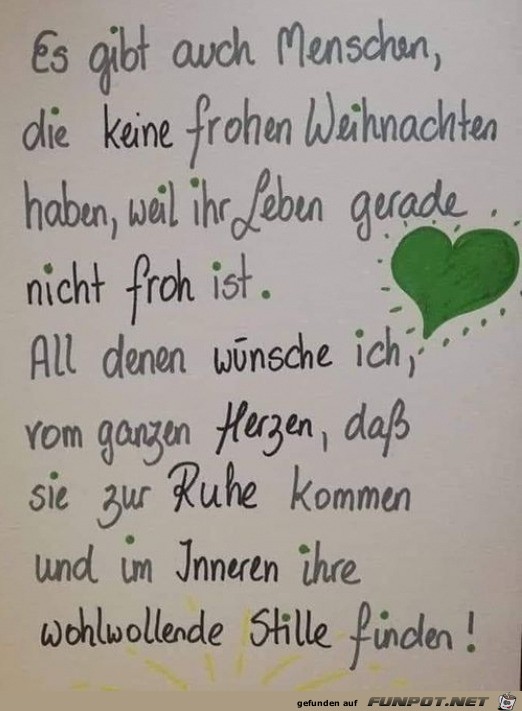 Es gibt auch Menschen,
die keine frohen Weihnachten
haben, weil ihr Leben gerade
nicht froh ist.
All denen wünsche ich,
vom ganzen Herzen, daß
sie zur Ruhe kommen
und im Inneren ihre
wohlwollende Stille finden!
gefunden auf FUNPOT.NET